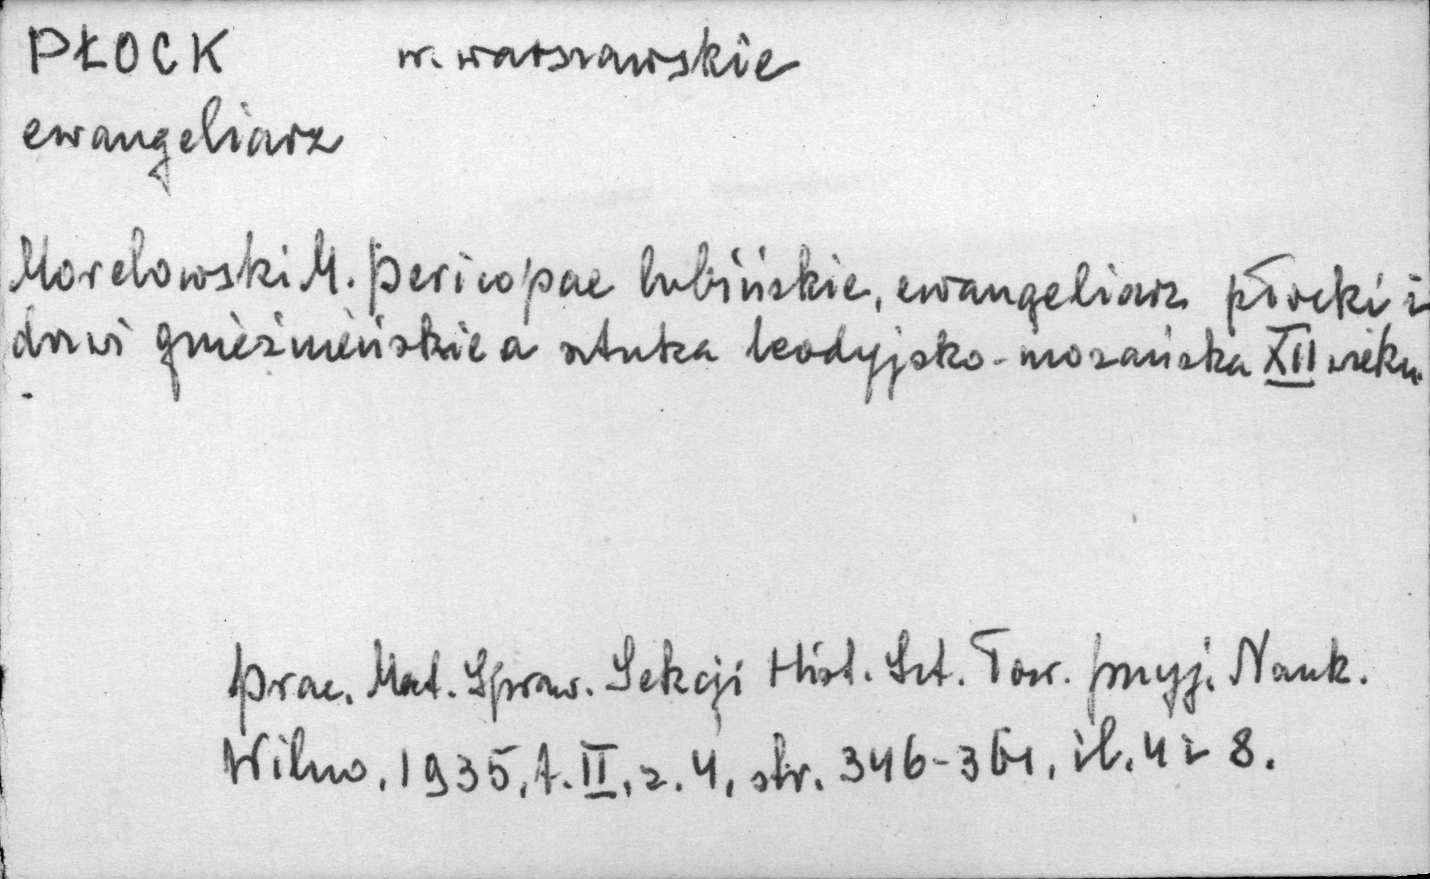 PŁOCK w. warszawskie
ewangeliarz
Morelowski M. Pericopae lubińskie, ewangeliarz płocki i
drzwi gnieźnieńskie a sztuka leodyjsko-mozańska XII wieku.
Prac. Mat. Spraw. Sekcji Hist. Szt. Tow. Przyj. Nauk.
Wilno, 1935, t. II, z. 4, str. 346-361, il. 4 i 8.